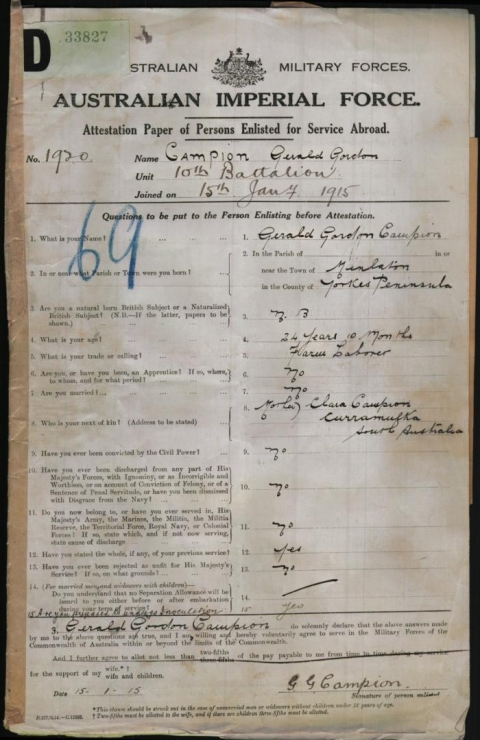 D 33827
STRALIAN MILITARY FORCES.
AUSTRALIAN IMPERIAL FORCE.
Attestation Paper of Persons Enlisted for Service Abroad.
No. 1920. Name Campion Gerald Gordon
Unit 10th Battalion
Joined on 15th Jany 1915
69
Questions to be put to the Person Enlisting before Attestation.
1. What is your Name? 1. Gerald Gordon Campion
2. In or near what Parish or Town were you born? 2. In the Parish of in or
near the Town of Minlaton
in the County of Yorkes Peninsula
3. Are you a natural born British Subject or a Naturalized
British Subject? (N.B.—If the latter, papers to be
shown.) 3. N. B
4. What is your age? 4. 24 years 10 Months
5. What is your trade or calling? 5. Farm Laborer
6. Are you, or have you been, an Apprentice? If so, where,
to whom, and for what period? 6. No
7. Are you married? 7. No
8. Who is your next of kin? (Address to be stated) 8. Mother Clara Campion
Curramulka
South Australia
9. Have you ever been convicted by the Civil Power? 9. no
10. Have you ever been discharged from any part of His
Majesty's Forces, with Ignominy, or as Incorrigible and
Worthless, or on account of Conviction of Felony, or of a
Sentence of Penal Servitude, or have you been dismissed
with Disgrace from the Navy? 10. no
11. Do you now belong to, or have you ever served in, His
Majesty's Army, the Marines, the Militia, the Militia
Reserve, the Territorial Force, Royal Navy, or Colonial
Forces? If so, state which, and if not now serving,
state cause of discharge 11. no
12. Have you stated the whole, if any, of your previous service? 12. yes
13. Have you ever been rejected as unfit for His Majesty's
Service? If so, on what grounds? 13. no
14. (For married men, and widowers with children)—
Do you understand that no Separation Allowance will be
issued to you either before or after embarkation
during your term of service? 14.
15 Are you prepared to undergo Inoculation 15 yes
Gerald Gordon Campion do solemnly declare that the above answers made
by me to the above questions are true, and I am willing and hereby voluntarily agree to serve in the Military Forces of the
Commonwealth of Australia within or beyond the limits of the Commonwealth.
And I further agree to allot not less than two-fifths three-fifths of the pay payable to me from time to time during my service
for the support of my wife.* † wife and children.
Date 15-1-15 G G Campion.
Signature of person enlisted
*This clause should be struck out in the case of unmarried men or widowers without children under 18 years of age.
† Two-fifths must be allotted to the wife, and if there are children three-fifths must be allotted.